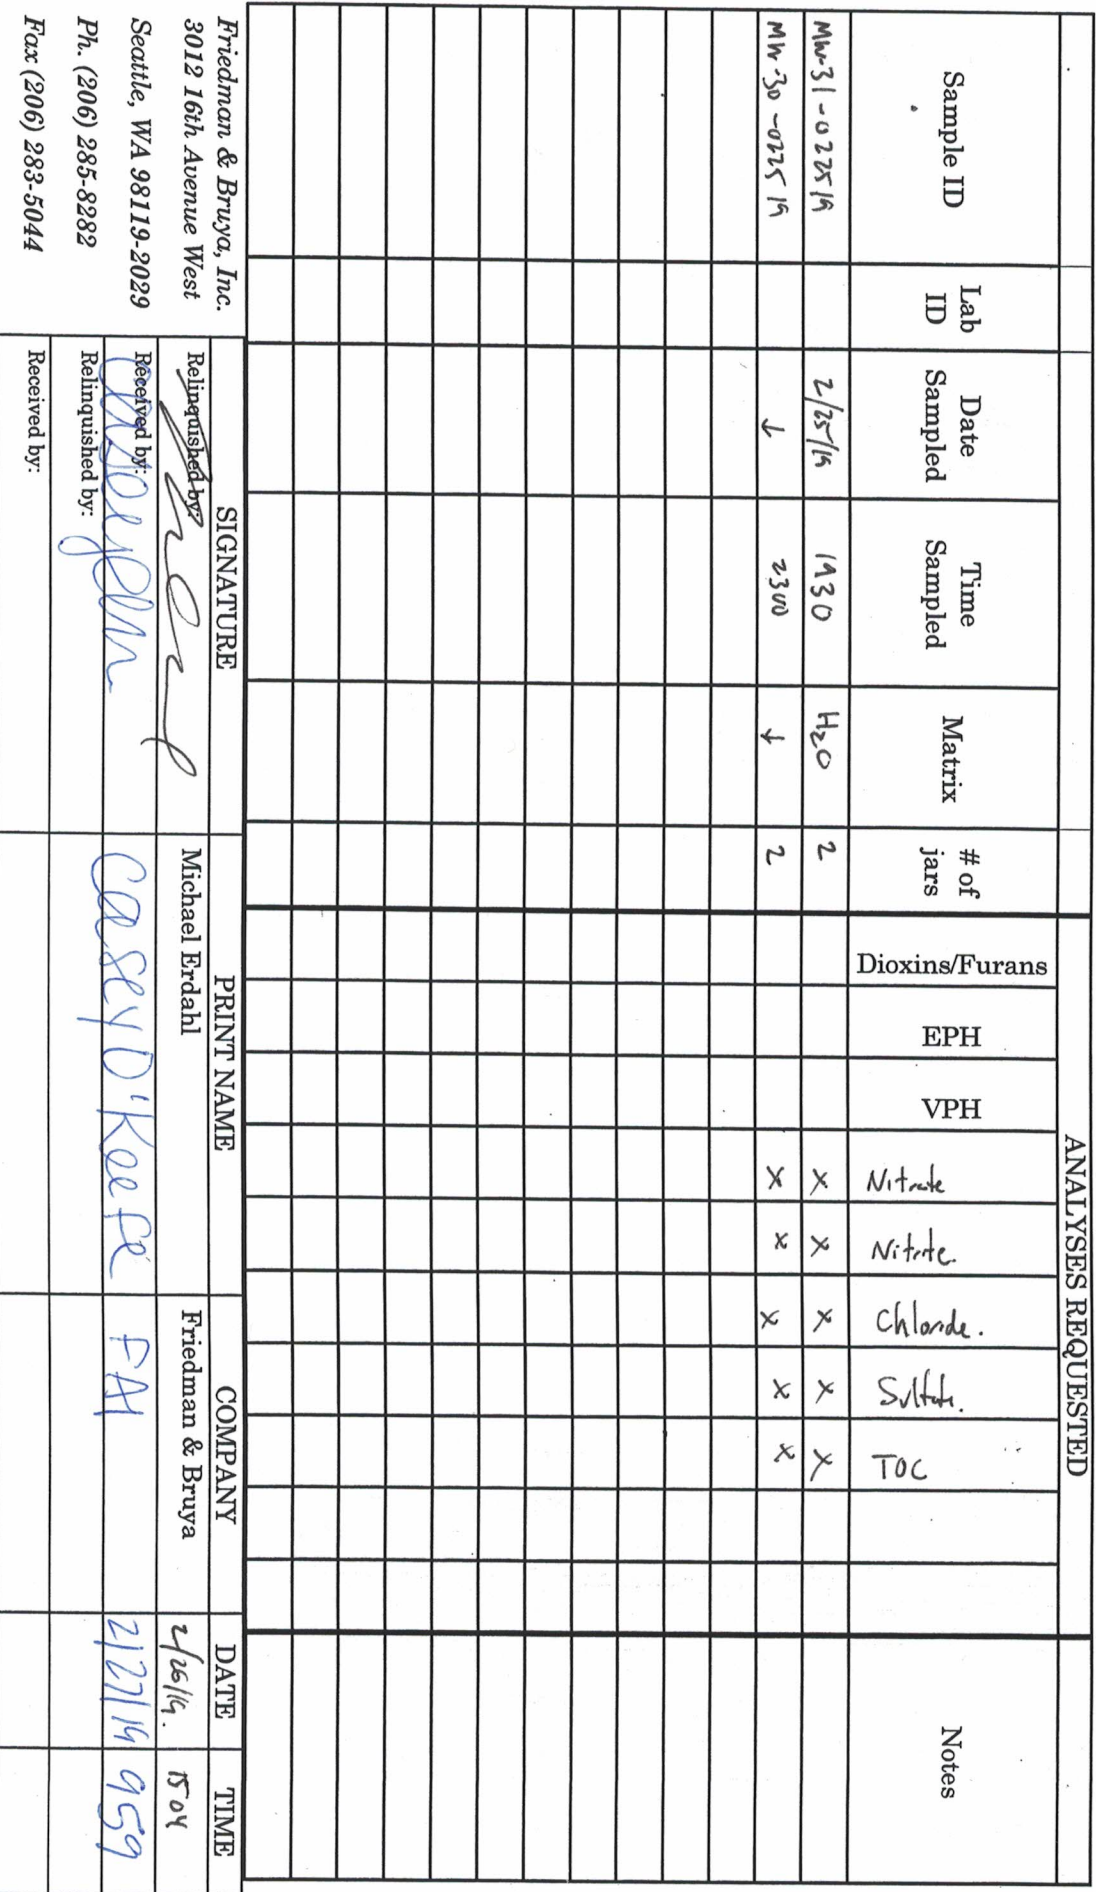 ANALYSES REQUESTED
Sample ID Lab ID Date Sampled Time Sampled Matrix # of jars Dioxins/Furans EPH VPH Nitrate Nitrite. Chloride. Sulfate. TOC Notes
MW-31-022519 2/25/19 1930 H2O 2 x x x x x
MW-30-022519 ↓ 2300 ↓ 2 x x x x x
Friedman & Bruya, Inc.
3012 16th Avenue West
Seattle, WA 98119-2029
Ph. (206) 285-8282
Fax (206) 283-5044
SIGNATURE PRINT NAME COMPANY DATE TIME
Relinquished by: Michael Erdahl Friedman & Bruya 2/26/19. 1504
Received by: Casey O'Keefe FAI 2/27/19 959
Relinquished by:
Received by: